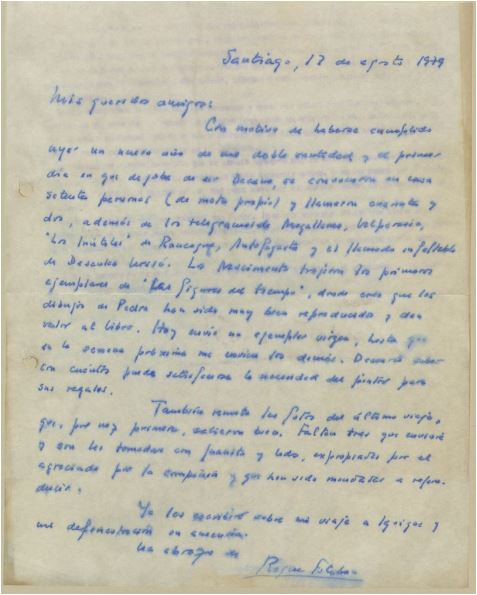 Santiago, 17 de agosto 1979
Mis queridos amigos:
Con motivo de haberse cumplido
ayer un nuevo año de una doble y el primer
día en que dejaba de ser Decano, se convocaron en casa
setenta personas (de motu propio) y llamaron cuarenta y
dos, además de los telegramas de Magallanes, Valparaíso,
"Los Inútiles" de Rancagua, Antofagasta y el llamado infaltable
de Desenka La Nascimento trajeron los primeros
ejemplares de "Las figuras del tiempo", donde creo que los
dibujos de Pedro han sido muy bien reproducidos y dan
valor al libro. Hoy envío un ejemplar virgen, hasta que
en la semana próxima me envíen los demás. Desearía saber
con cuántos puedo satisfacerse la necesidad del pintor para
sus regalos.
También remito las fotos del último viaje,
que, por vez primera, salieron bien. Faltan tres que enviaré
y son las tomadas con Juanita y Lolo, expropiadas por el
agraciado por la compañía y que han sido mandadas a repro-
ducir.
Ya les escribiré sobre mi viaje a Iquique y
una en
Un abrazo de
Roque Esteban